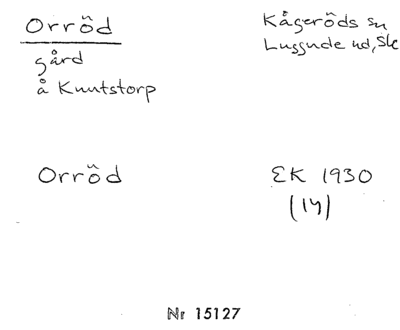 Orröd
gård
å Knutstorp
Kågeröds sn
Luggude hd, Sk
Orröd
EK 1930
(14)
Nr 15127